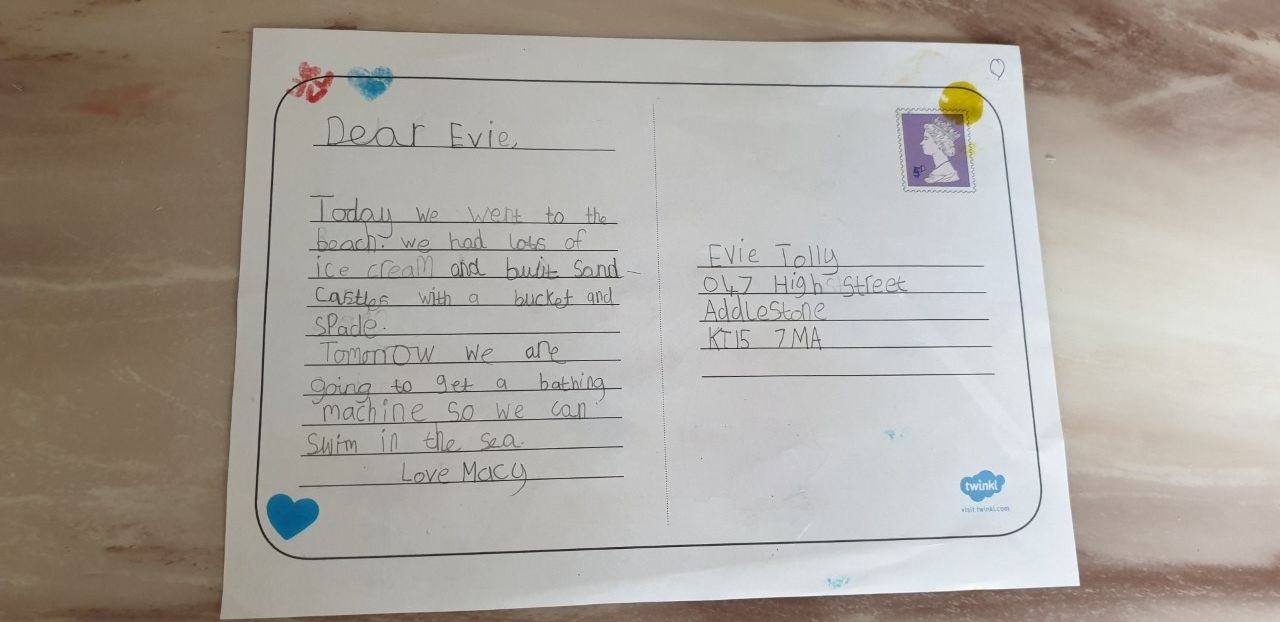 Dear Evie,
Today we went to the
beach. we had lots of
ice cream and built sand
castles with a bucket and
spade.
Tomorrow we are
going to get a bathing
machine so we can
swim in the sea.
Love Macy
5D
Evie Tolly
047 High Street
Addlestone
KT15 7MA
twinkl
visit twinkl.com